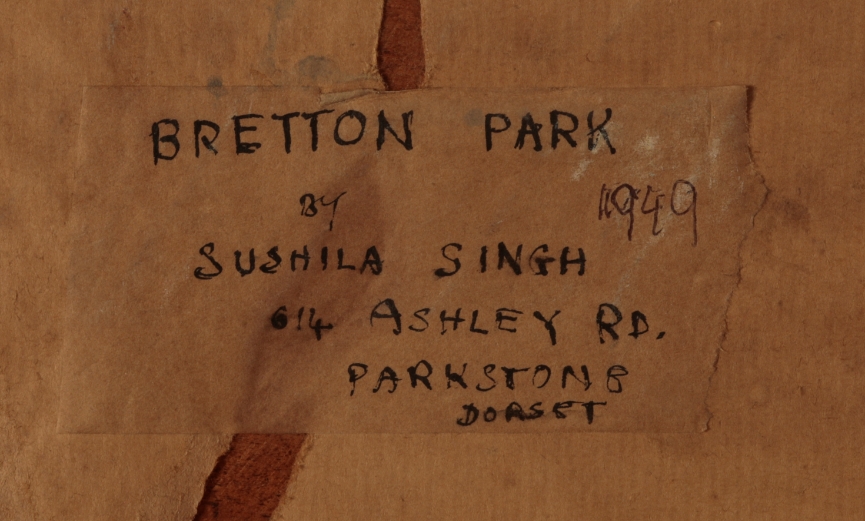 BRETTON PARK
BY 1949
SUSHILA SINGH
614 ASHLEY RD.
PARKSTONE
DORSET